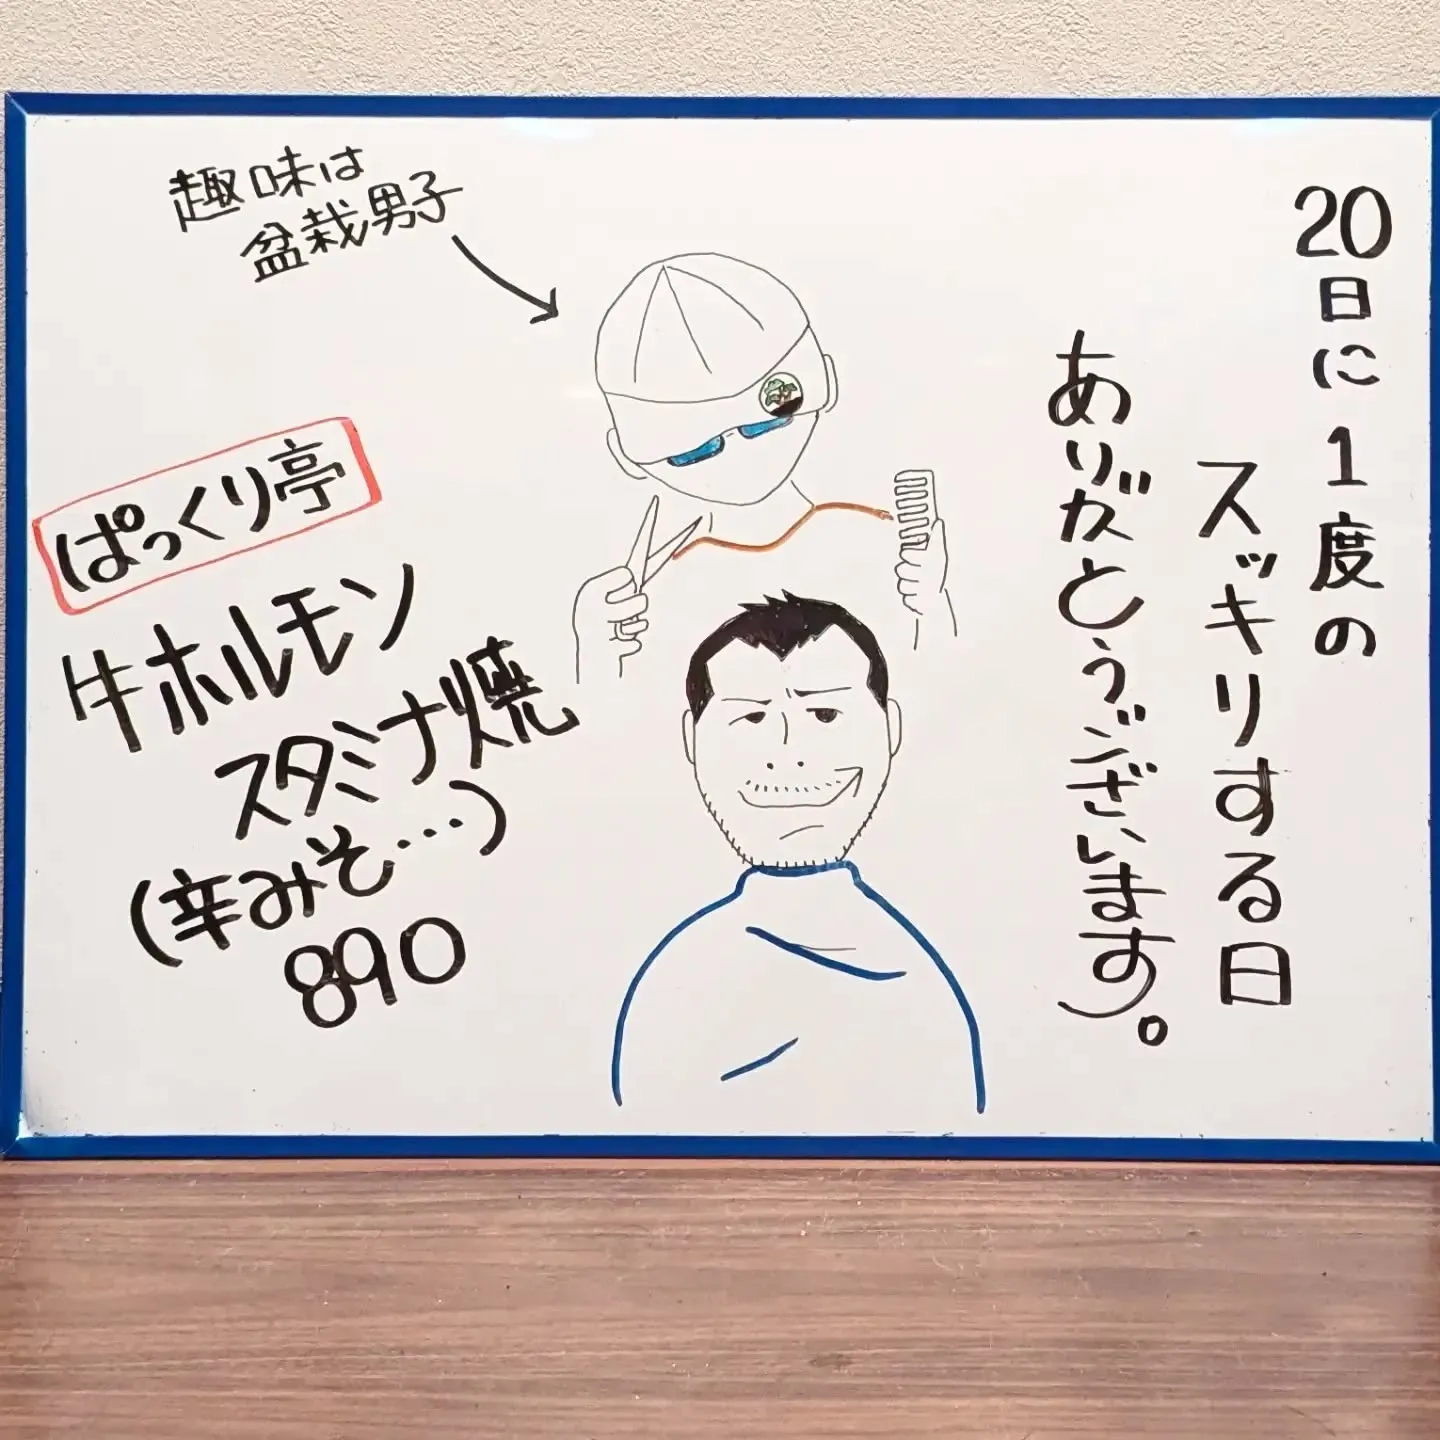 20日に1度の
スッキリする日
ありがとうございます。
趣味は
盆栽男子
ぱっくり亭
牛ホルモン
スタミナ焼
(辛みそ…)
890